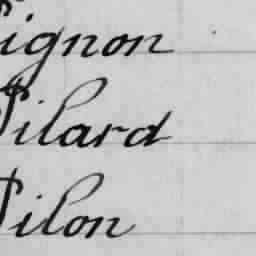 Pignon
Pilard
Pilon